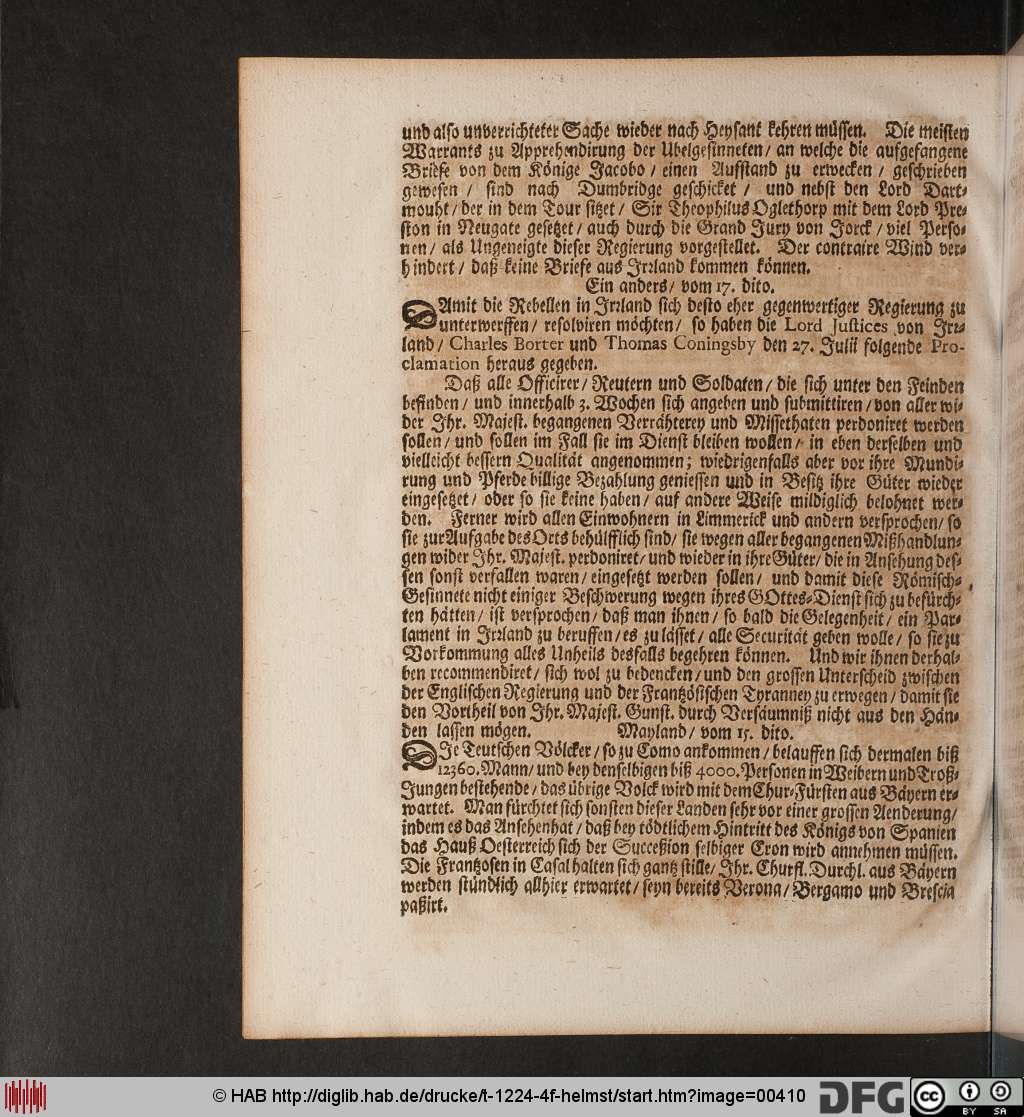 und also unverrichteter Sache wieder nach Heysant kehren müssen. Die meisten
Warrants zu Apprehendirung der Ubelgesinneten/ an welche die aufgefangene
Briefe von dem Könige Jacobo/ einen Aufstand zu erwecken/ geschrieben
gewesen/ sind nach Dumbridge geschicket/ und nebst den Lord Dart-
mouht/ der in dem Tour sitzet/ Sir Theophilus Oglethorp mit dem Lord Pre-
ston in Neugate gesetzet/ auch durch die Grand Jury von Jorck/ viel Perso-
nen/ als Ungeneigte dieser Regierung vorgestellet. Der contraire Wind ver-
hindert/ daß keine Briefe aus Irrland kommen können.
Ein anders/ vom 17. dito.
DAmit die Rebellen in Irrland sich desto eher gegenwertiger Regierung zu
unterwerffen/ resolviren möchten/ so haben die Lord Justices von Irr-
land/ Charles Borter und Thomas Coningsby den 27. Julii folgende Pro-
clamation heraus gegeben.
Daß alle Officirer/ Reutern und Soldaten/ die sich unter den Feinden
befinden/ und innerhalb 3. Wochen sich angeben und submittiren/ von aller wi-
der Ihr. Majest. begangenen Verrähterey und Missethaten perdoniret werden
sollen/ und sollen im Fall sie im Dienst bleiben wollen/ in eben derselben und
vielleicht bessern Qualität angenommen; wiedrigenfalls aber vor ihre Mundi-
rung und Pferde billige Bezahlung geniessen und in Besitz ihre Güter wieder
eingesetzet/ oder so sie keine haben/ auf andere Weise mildiglich belohnet wer-
den. Ferner wird allen Einwohnern in Limmerick und andern versprochen/ so
sie zur Aufgabe des Orts behülfflich sind/ sie wegen aller begangenen Mißhandlun-
gen wider Ihr. Majest. perdoniret/ und wieder in ihre Güter/ die in Ansehung des-
sen sonst verfallen waren/ eingesetzt werden sollen/ und damit diese Römisch-
Gesinnete nicht einiger Beschwerung wegen ihres GOttes-Dienst sich zu befürch-
ten hätten/ ist versprochen/ daß man ihnen/ so bald die Gelegenheit/ ein Par-
lament in Irrland zu beruffen/ es zu lässet/ alle Securität geben wolle/ so sie zu
Vorkommung alles Unheils desfalls begehren können. Und wir ihnen derhal-
ben recommendiret/ sich wol zu bedencken/ und den grossen Unterscheid zwischen
der Englischen Regierung und der Frantzösischen Tyranney zu erwegen/ damit sie
den Vortheil von Ihr. Majest. Gunst. durch Versäumniß nicht aus den Hän-
den lassen mögen. Mayland/ vom 15. dito.
DIe Teutschen Völcker/ so zu Como ankommen/ belauffen sich dermalen biß
12360. Mann/ und bey denselbigen biß 4000. Personen in Weibern und Troß-
Jungen bestehende/ das übrige Volck wird mit dem Chur-Fürsten aus Bäyern er-
wartet. Man fürchtet sich sonsten dieser Landen sehr vor einer grossen Aenderung/
indem es das Ansehen hat/ daß bey tödtlichem Hintritt des Königs von Spanien
das Hauß Oesterreich sich der Succeßion selbiger Cron wird annehmen müssen.
Die Frantzosen in Casal halten sich gantz stille/ Ihr. Churfl. Durchl. aus Bäyern
werden stündlich allhier erwartet/ seyn bereits Verona/ Bergamo und Brescia
paßirt.
© HAB http://diglib.hab.de/drucke/t-1224-4f-helmst/start.htm?image=00410
DFG
cc
BY SA